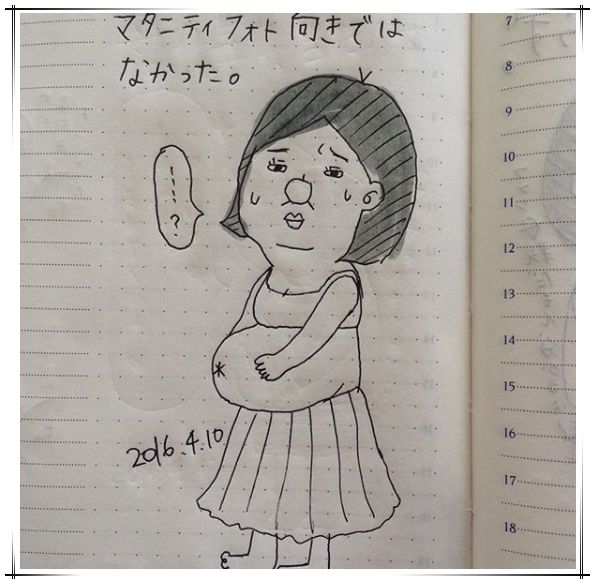 マタニティフォト向きでは
なかった。
7
8
9
10
11
12
13
14
15
16
17
18
・・・・?
2016.4.10